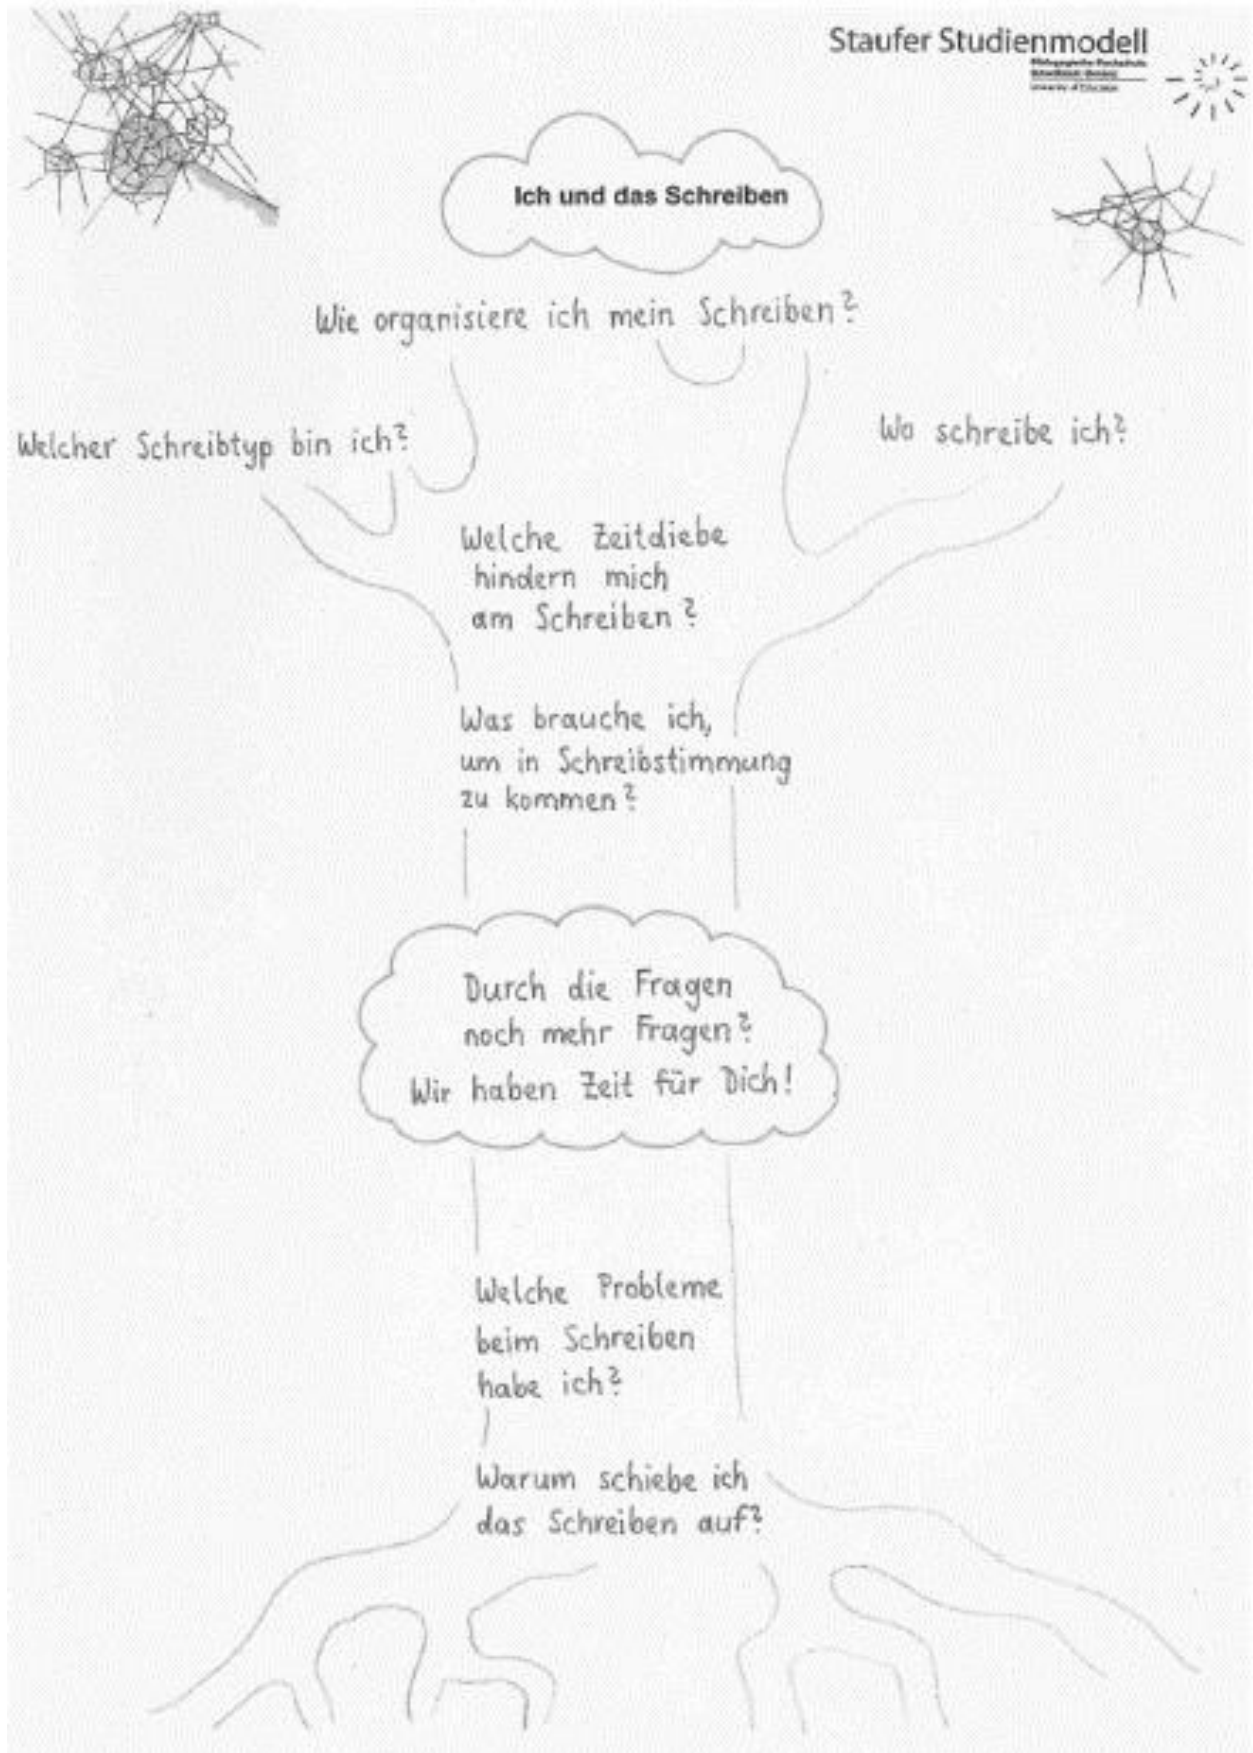 Staufer Studienmodell
Pädagogische Hochschule
University of Education
Ich und das Schreiben
Wie organisiere ich mein Schreiben?
Welcher Schreibtyp bin ich?
Wo schreibe ich?
Welche Zeitdiebe
hindern mich
am Schreiben?
Was brauche ich,
um in Schreibstimmung
zu kommen?
Durch die Fragen
noch mehr Fragen?
Wir haben Zeit für Dich!
Welche Probleme
beim Schreiben
habe ich?
Warum schiebe ich
das Schreiben auf?